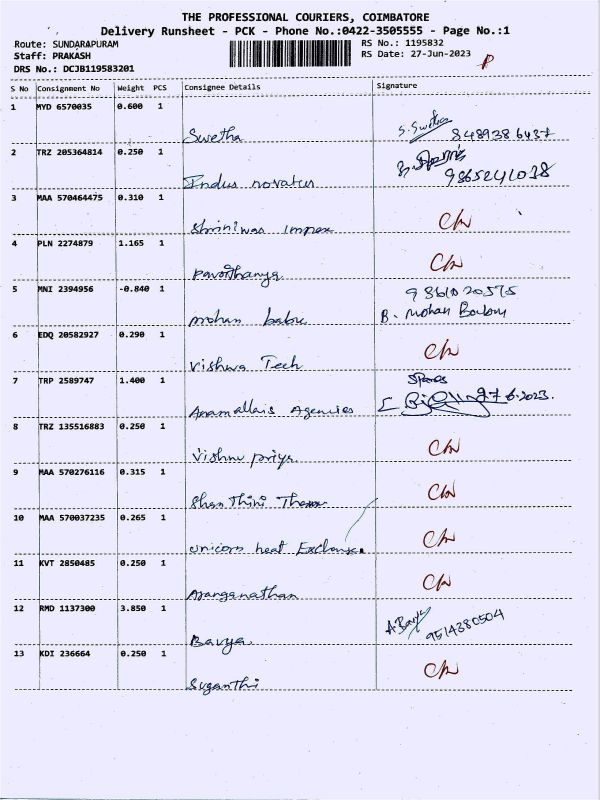 THE PROFESSIONAL COURIERS, COIMBATORE
Delivery Runsheet - PCK - Phone No.:0422-3505555 - Page No.:1
Route: SUNDARAPURAM RS No.: 1195832
Staff: PRAKASH RS Date: 27-Jun-2023
DRS No.: DCJB119583201
S No Consignment No Weight PCS Consignee Details Signature
1 MYD 6570035 0.600 1
Swetha S. Swetha 8489386437
2 TRZ 205364814 0.250 1
Indus novatur 9865241038
3 MAA 570464475 0.310 1
Shriniwas impex
4 PLN 2274879 1.165 1
5 MNI 2394956 -0.840 1 9361020575
mohan babu B. Mohan Babu
6 EDQ 20582927 0.290 1
Vishwa Tech
7 TRP 2589747 1.400 1
Anamallais Agencies 27.6.2023.
8 TRZ 135516883 0.250 1
Vishnu priya
9 MAA 570276116 0.315 1
Shanthini
10 MAA 570037235 0.265 1
unicorn heat Exchanger
11 KVT 2850485 0.250 1
Aranganathan
12 RMD 1137300 3.850 1
Bavya A. Bavya 9514380504
13 KDI 236664 0.250 1
Suganthi